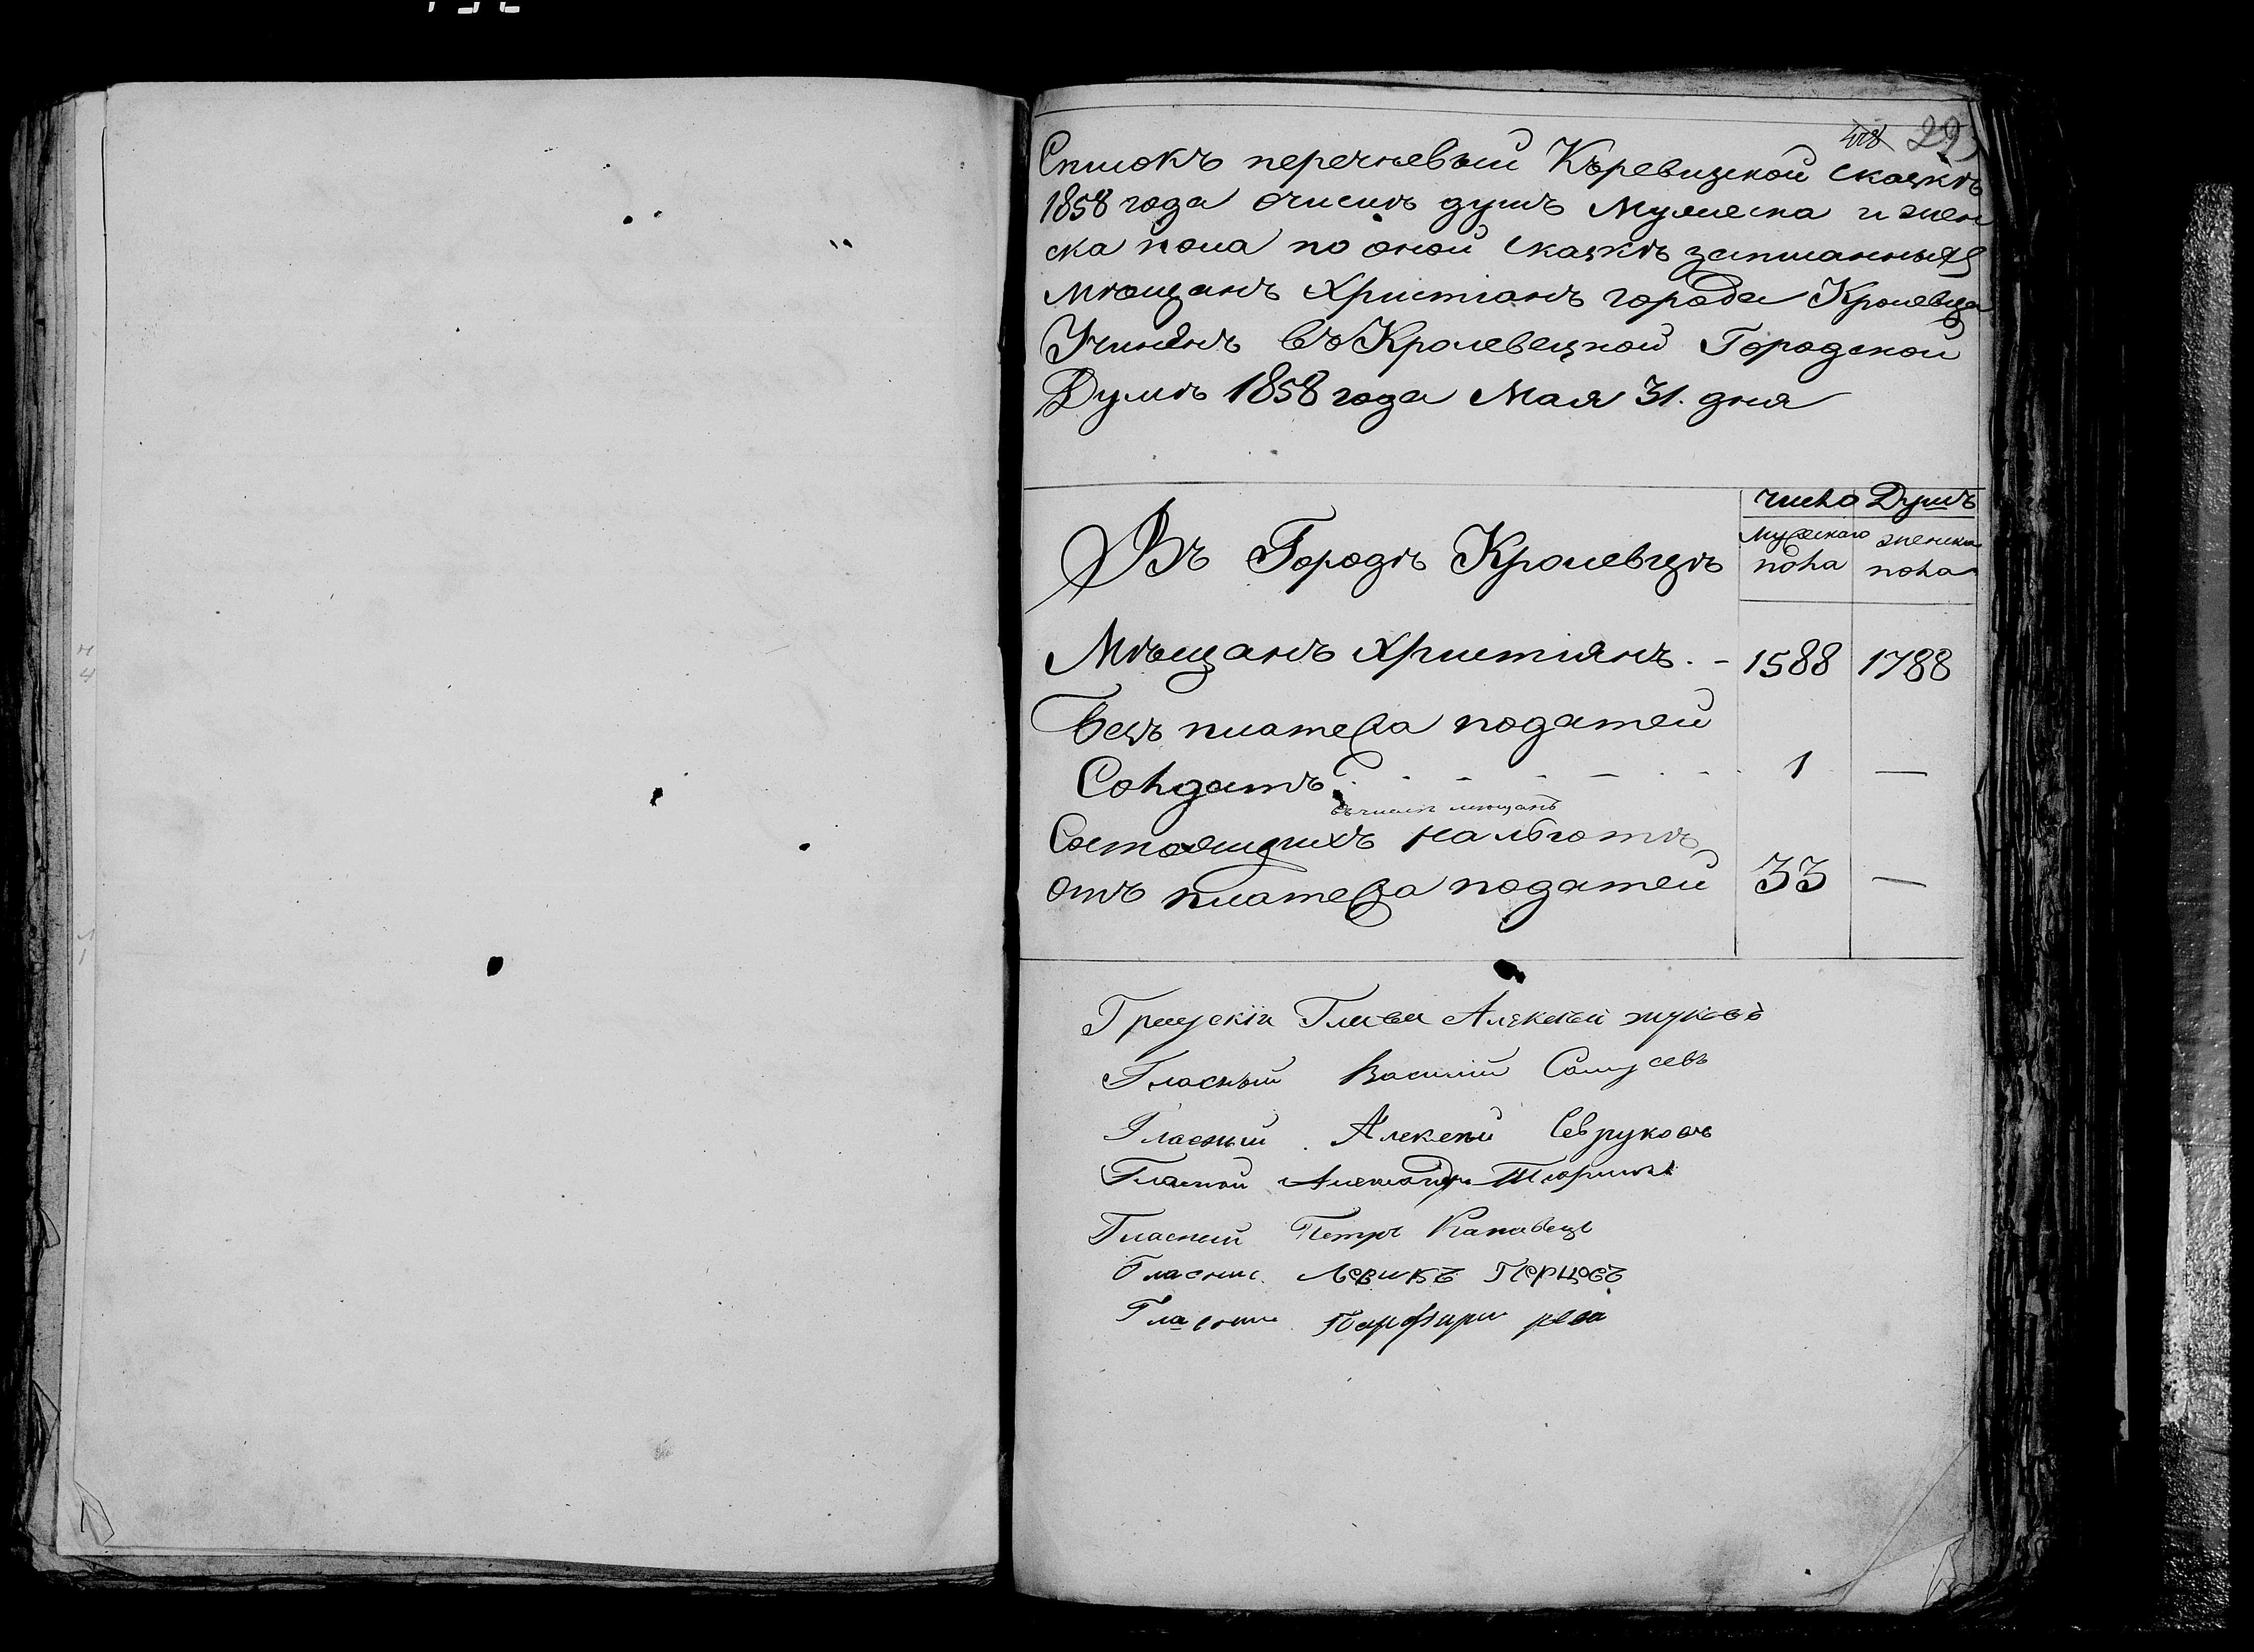 408 295
Списокъ перечневый Къревизской сказкѣ
1858 года очислѣ душъ Мужеска и жен
ска пола по оной сказкѣ записанныхъ
Мѣщанъ Христіанъ города Кролевца
Учиненъ въ Кролевецкой Городской
Думѣ 1858 года Мая 31. дня
число Душъ
Въ Городѣ Кролевцѣ
Мужескаго женска
пола пола
Мѣщанъ Христіянъ. - 1588 1788
Безъ платежа податей
Солдатъ. 1 —
въ числѣ мѣщанъ
Состоящихъ на льготѣ
отъ платежа податей 33 —
Глава Алексѣй жуковъ
Гласный Василій
Гласный Алексѣй Севруковъ
Гласной Александръ
Гласный Петръ
Гласный Левикъ Перцовъ
Гласный